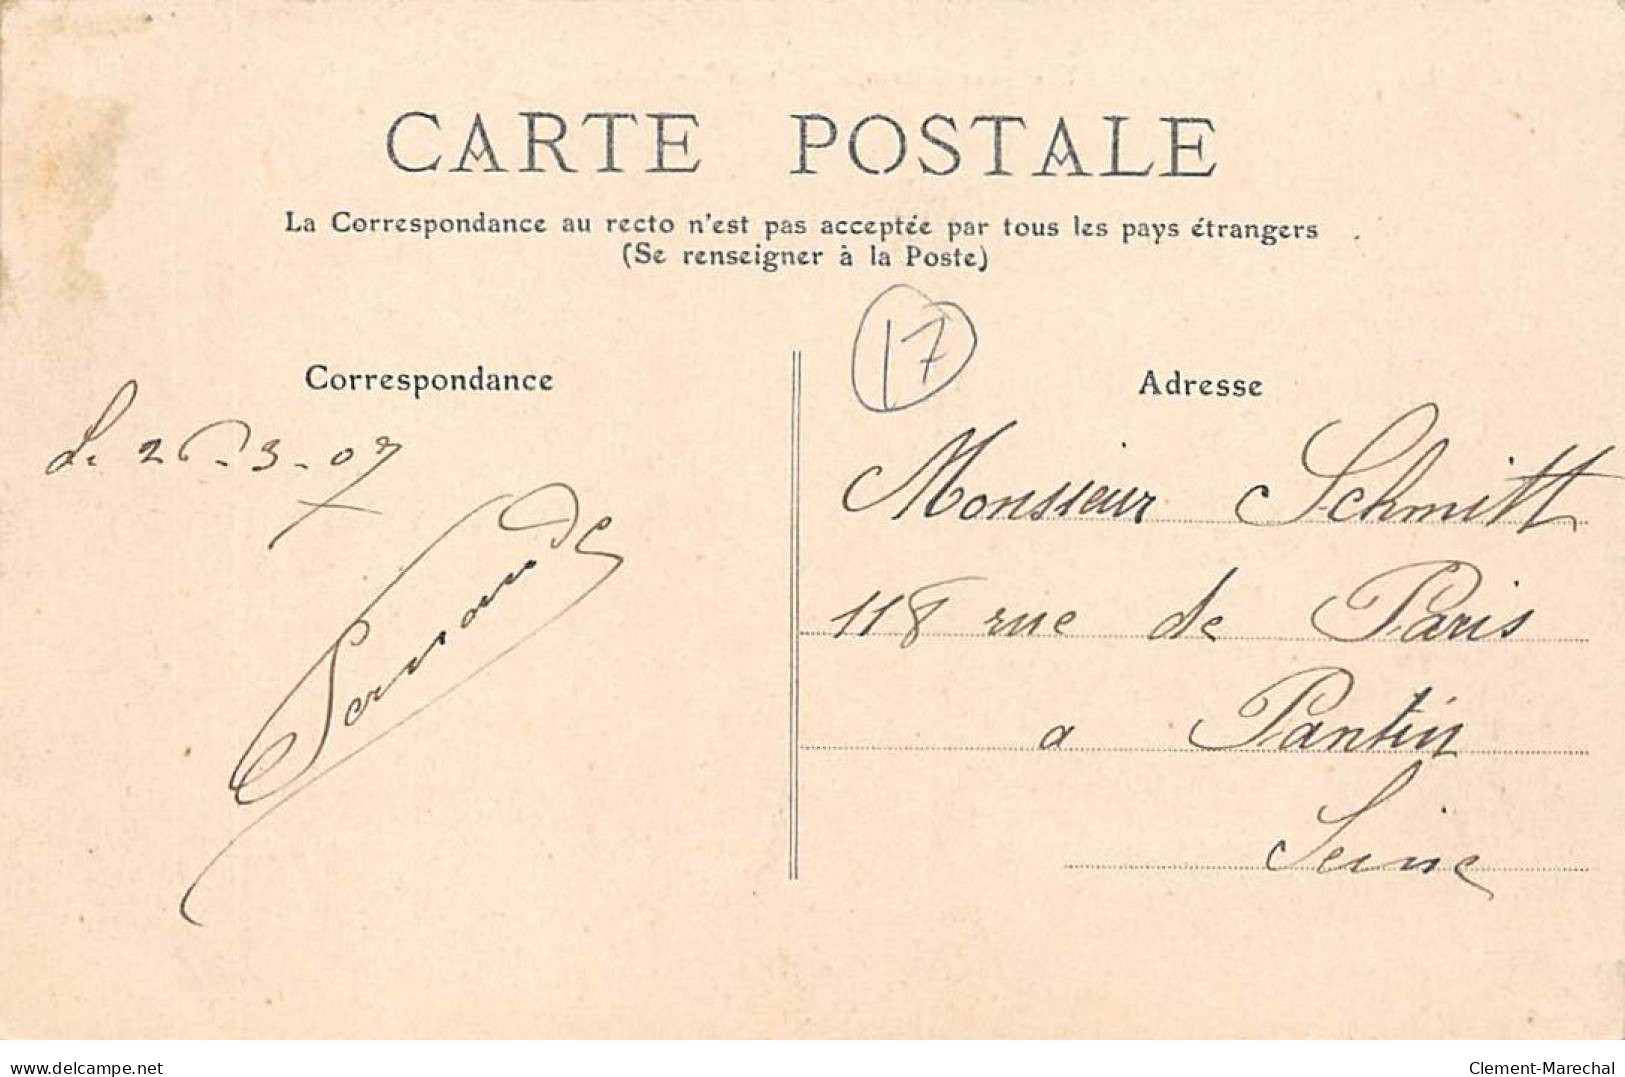 CARTE POSTALE
La Correspondance au recto n'est pas acceptée par tous les pays étrangers
(Se renseigner à la Poste)
17
Correspondance
Adresse
Le 26-3-07
Fernande
Monsieur Schmitt
118 rue de Paris
a Pantin
Seine
www.delcampe.net
Clement-Marechal